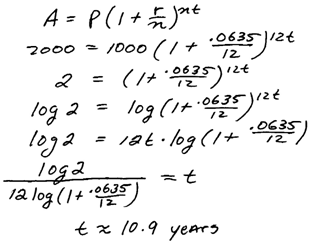 A = P(1 + r/n)^nt
2000 = 1000(1 + .0635/12)^12t
2 = (1 + .0635/12)^12t
log 2 = log(1 + .0635/12)^12t
log 2 = 12t · log(1 + .0635/12)
log 2 / 12 log(1 + .0635/12) = t
t ≈ 10.9 years